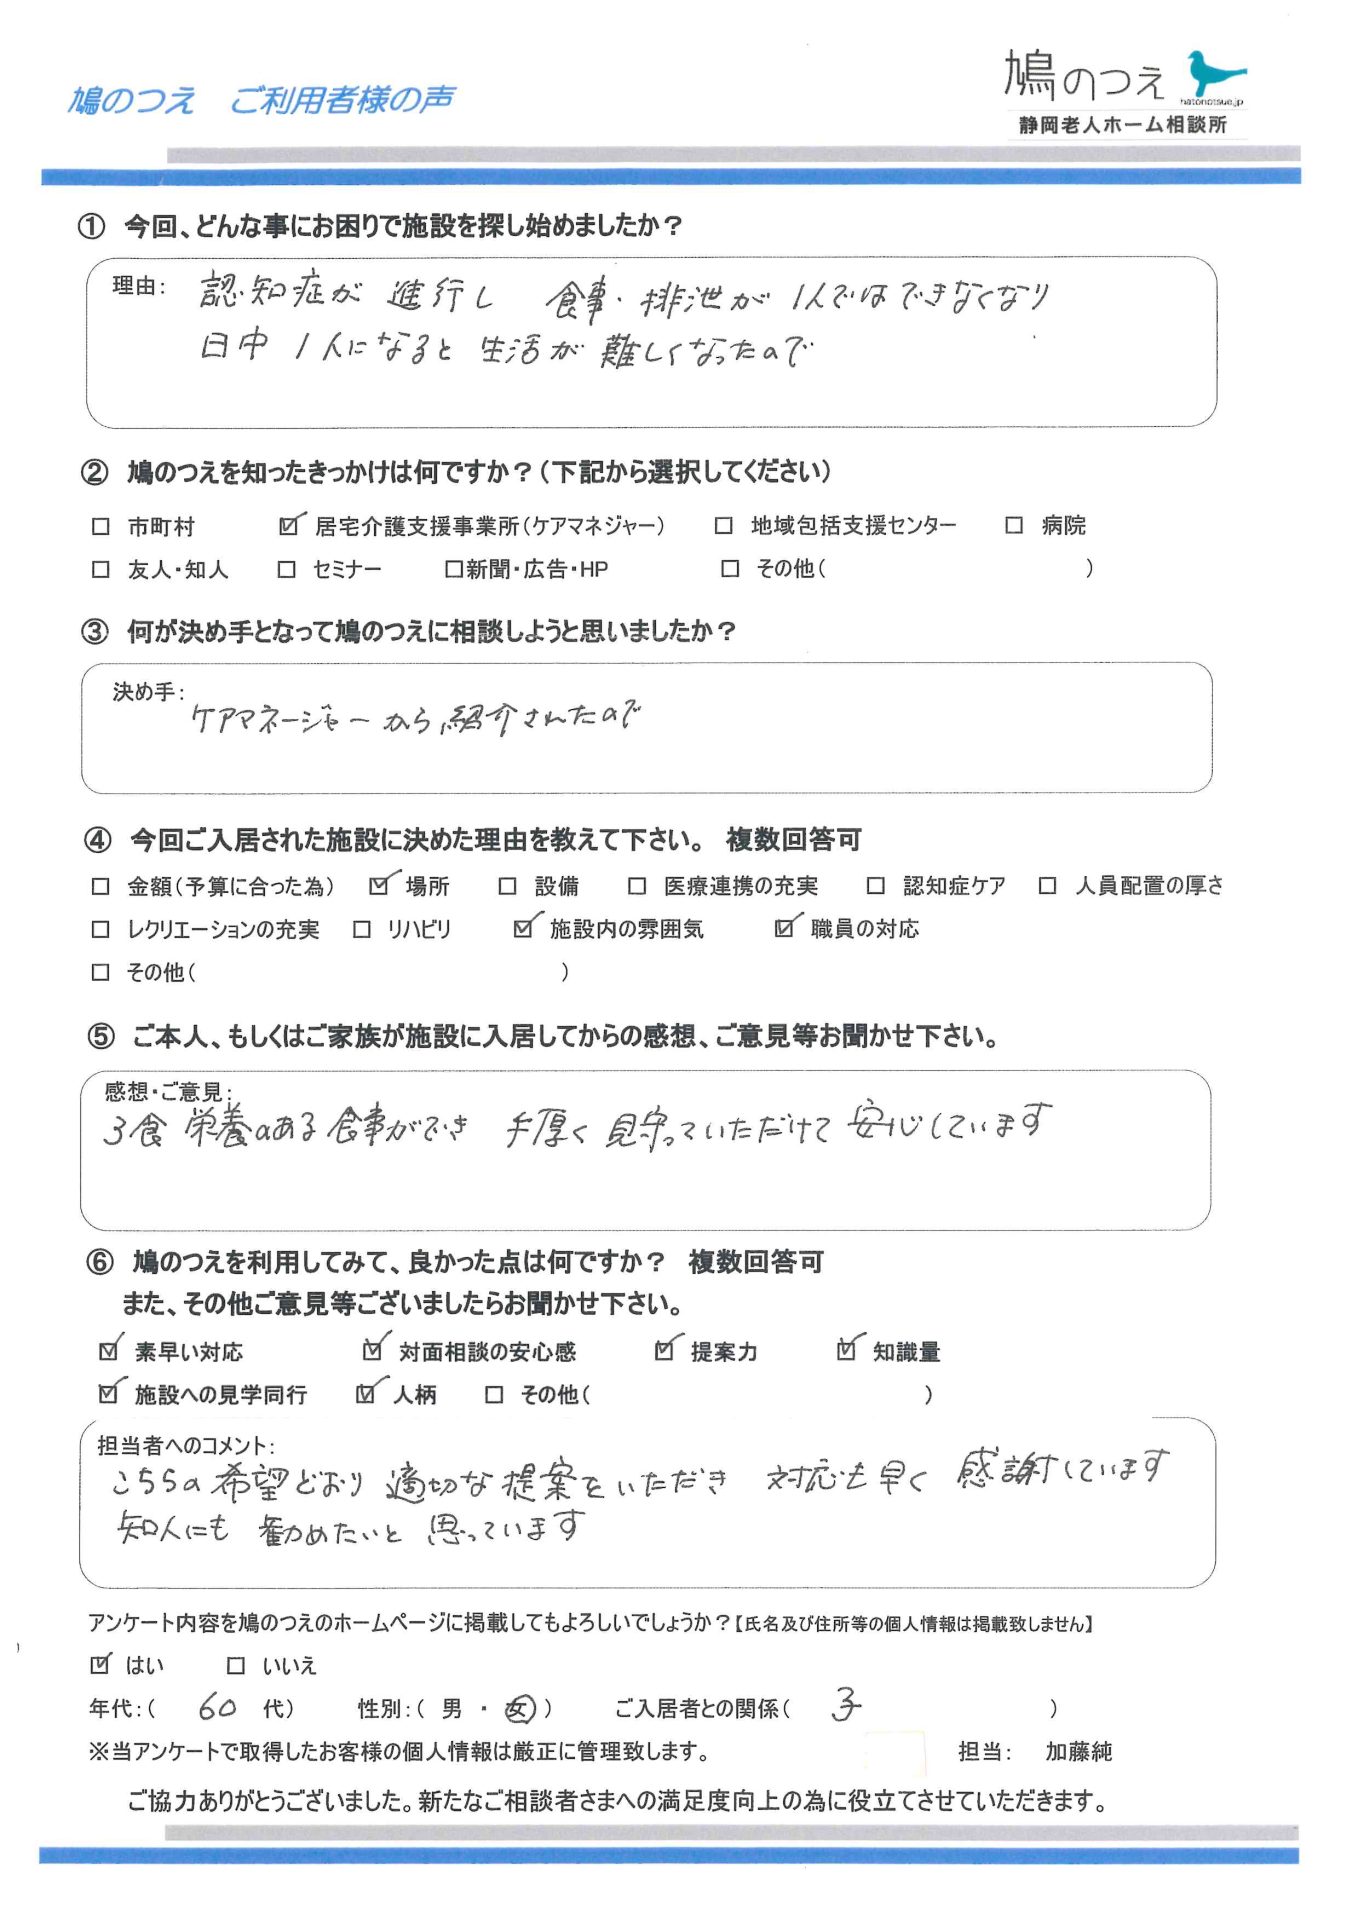 鳩のつえ ご利用者様の声
鳩のつえ
hatonotsue.jp
静岡老人ホーム相談所
① 今回、どんな事にお困りで施設を探し始めましたか？
理由: 認知症が 進行し 食事・排泄が 1人ではできなくなり
日中 1人になると 生活が 難しくなったので
② 鳩のつえを知ったきっかけは何ですか？（下記から選択してください）
□ 市町村 ☑ 居宅介護支援事業所（ケアマネジャー） □ 地域包括支援センター □ 病院
□ 友人・知人 □ セミナー □新聞・広告・HP □ その他（ ）
③ 何が決め手となって鳩のつえに相談しようと思いましたか？
決め手:
ケアマネージャーから紹介されたので
④ 今回ご入居された施設に決めた理由を教えて下さい。 複数回答可
□ 金額（予算に合った為） ☑ 場所 □ 設備 □ 医療連携の充実 □ 認知症ケア □ 人員配置の厚さ
□ レクリエーションの充実 □ リハビリ ☑ 施設内の雰囲気 ☑ 職員の対応
□ その他（ ）
⑤ ご本人、もしくはご家族が施設に入居してからの感想、ご意見等お聞かせ下さい。
感想・ご意見:
3食 栄養のある食事ができ 手厚く 見守っていただけて 安心しています
⑥ 鳩のつえを利用してみて、良かった点は何ですか？ 複数回答可
また、その他ご意見等ございましたらお聞かせ下さい。
☑ 素早い対応 ☑ 対面相談の安心感 ☑ 提案力 ☑ 知識量
☑ 施設への見学同行 ☑ 人柄 □ その他（ ）
担当者へのコメント:
こちらの希望どおり 適切な提案をいただき 対応も早く 感謝しています
知人にも 勧めたいと 思っています
アンケート内容を鳩のつえのホームページに掲載してもよろしいでしょうか？【氏名及び住所等の個人情報は掲載致しません】
☑ はい □ いいえ
年代:（ 60 代） 性別:（ 男 ・ 女 ） ご入居者との関係（ 子 ）
※当アンケートで取得したお客様の個人情報は厳正に管理致します。 担当: 加藤純
ご協力ありがとうございました。新たなご相談者さまへの満足度向上の為に役立てさせていただきます。